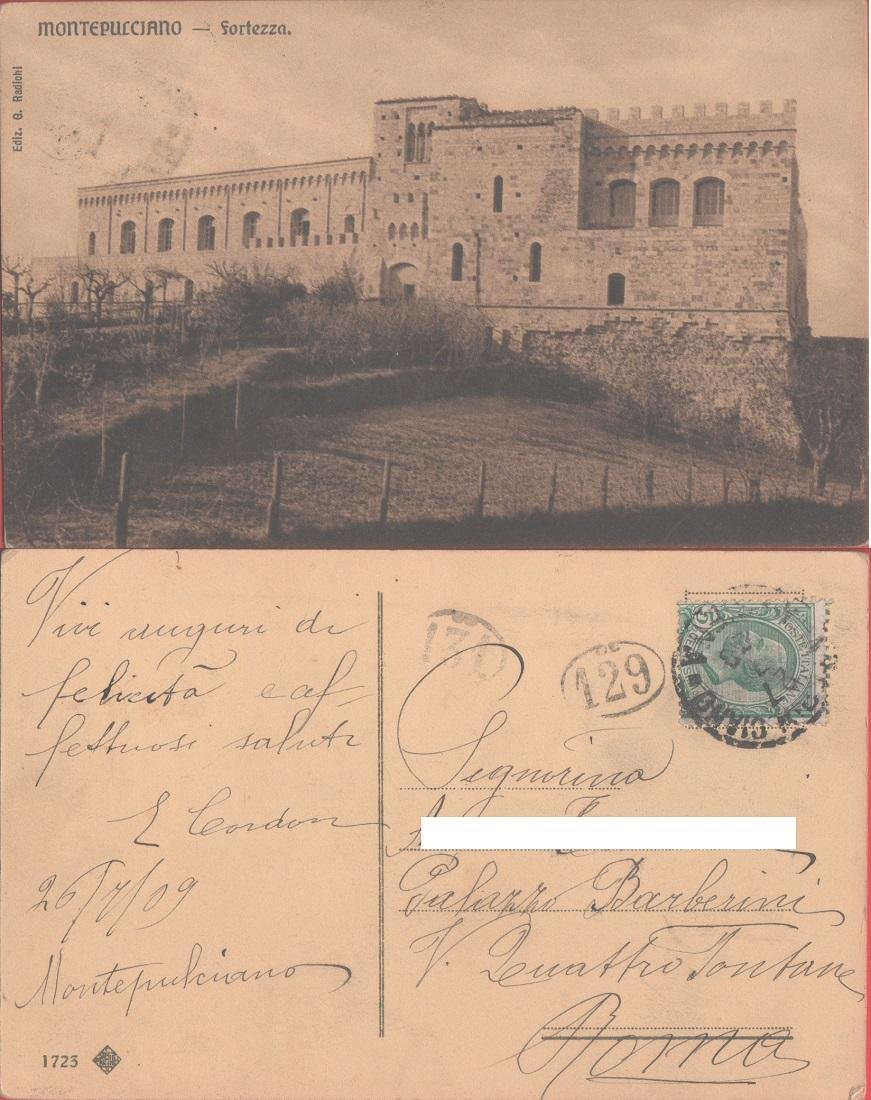 MONTEPULCIANO — Fortezza.
Ediz. G. Radichi
Vivi auguri di
felicità e af-
fettuosi saluti
E Cordon
26/7/09
Montepulciano
1723
130
129
POSTE ITALIANE
Signorina
Palazzo Barberini
V. Quattro Fontane
Roma